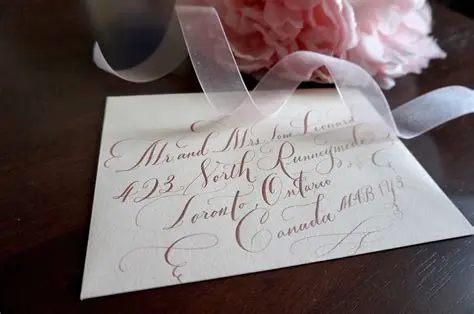 Mr and Mrs. Tom Leonard
423 North Runneymede
Toronto, Ontario
Canada M4B 1Y3